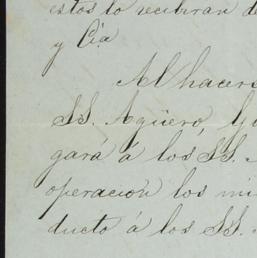 estos lo recibirán de
y Cía
Al hacers
SS. Agüero, G
gará á los SS.
operacion los mi
ducto á los SS.